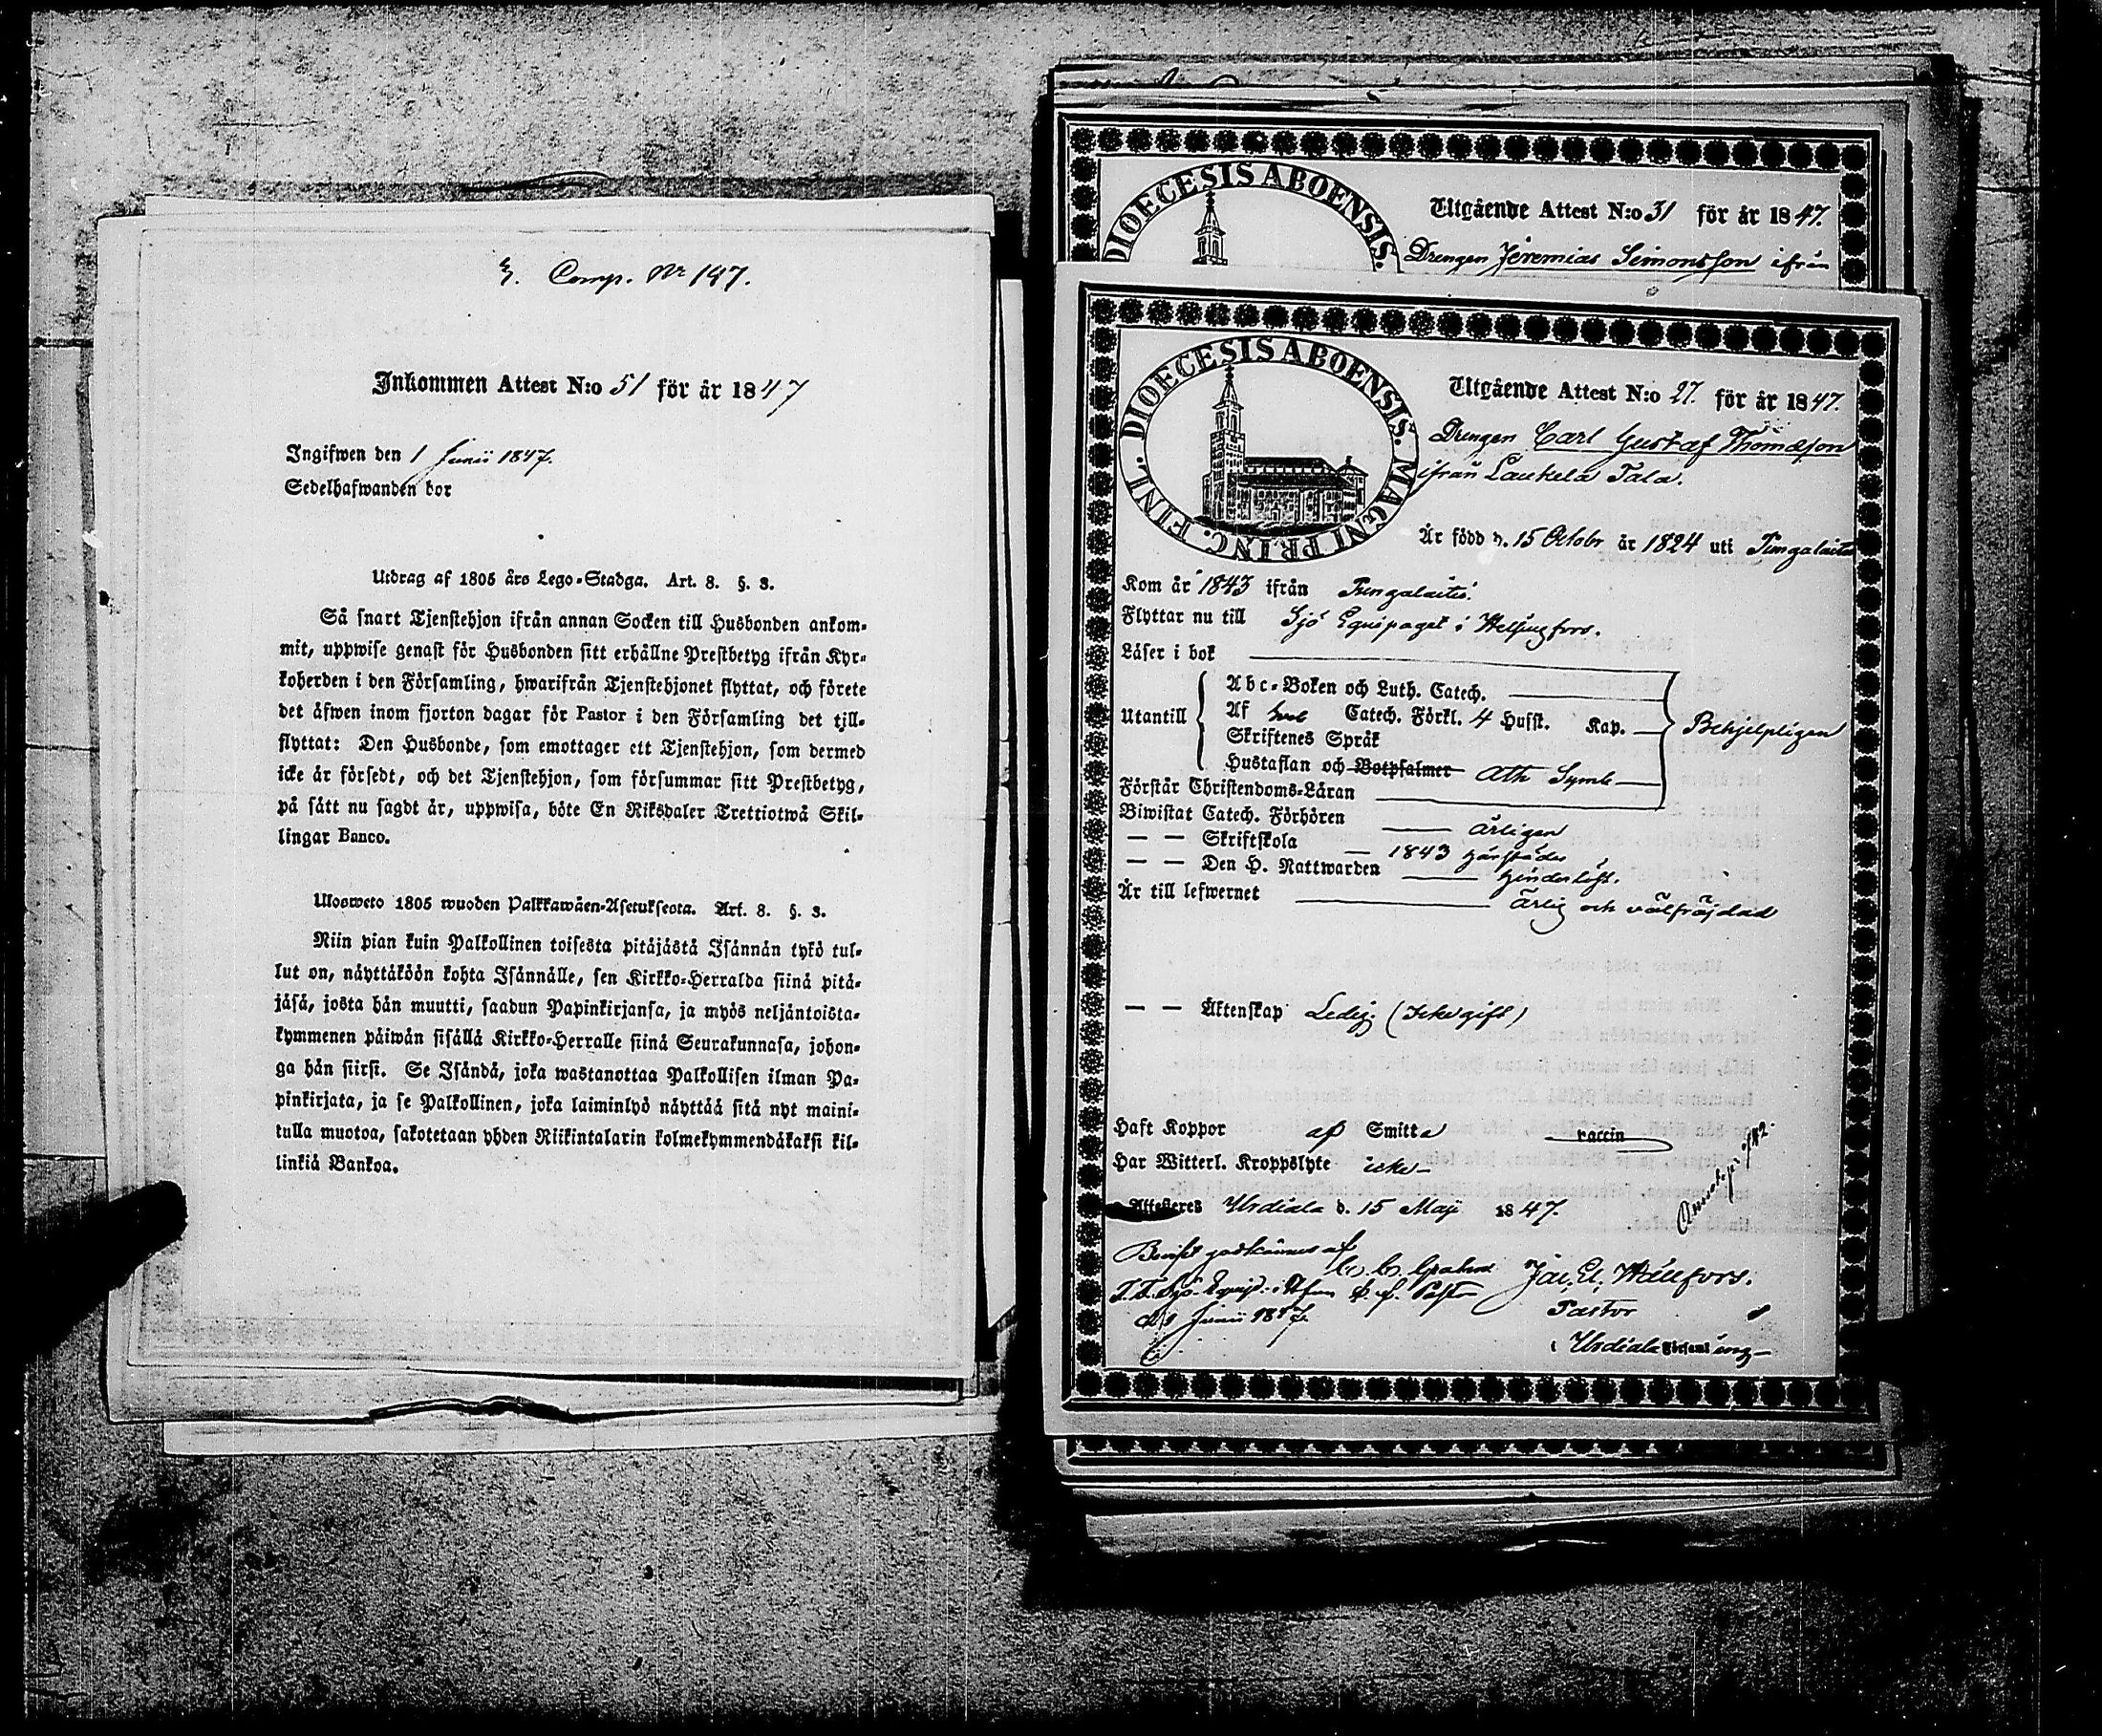 Comp. Nr 147.
Inkommen Attest N:o 51 för år 1847
Ingifwen den 1 Junii 1847.
Sedelhafwanden bor
Utdrag af 1805 års Lego-Stadga. Art. 8. §. 3.
Så snart Tjenstehjon ifrån annan Socken till Husbonden ankom-
mit, uppwise genast för Husbonden sitt erhållne Prestbetyg ifrån Kyr-
koherden i den Församling, hwarifrån Tjenstehjonet flyttat, och förete
det åfwen inom fjorton dagar för Pastor i den Församling det till-
flyttat: Den Husbonde, som emottager ett Tjenstehjon, som dermed
icke år försedt, och det Tjenstehjon, som försummar sitt Prestbetyg,
på sått nu sagdt år, uppwisa, böte En Riksdaler Trettiotwå Skil-
lingar Banco.
Ulosweto 1805 wuoden Palkkawäen-Asetuksesta. Art. 8. §. 3.
Niin pian kuin Palkollinen toisesta pitåjåstå Isånnån tykö tul-
lut on, nåyttåköön kohta Isånnålle, sen Kirkko-Herralda siinå pitå-
jåså, josta hån muutti, saadun Papinkirjansa, ja myös neljåntoista-
kymmenen påiwån sisållå Kirkko-Herralle siinå Seurakunnasa, johon-
ga hån siirsi. Se Isåndå, joka wastanottaa Palkollisen ilman Pa-
pinkirjata, ja se Palkollinen, joka laiminlyö nåyttåå sitå nyt maini-
tulla muotoa, sakotetaan yhden Riikintalarin kolmekymmendåkaksi kil-
linkiå Bankoa.
DIOECESIS ABOENSIS.
Utgående Attest N:o 31 för år 1847.
Drengen Jeremias Simonsson ifrån
DIOECESIS ABOENSIS. MAGNI PRINC. FINL.
Utgående Attest N:o 27. för år 1847.
Drengen Carl Gustaf Thomasson
ifrån Laukela Tala.
År född d. 15 Octobr år 1824 uti Pungalaitio
Kom år 1843 ifrån Pungalaitio.
Flyttar nu till Sjö Equipaget i Helsingfors.
Låser i bok
Utantill
Abc-Boken och Luth. Catech.
Af hela Catech. Förkl. 4 Hufst. Kap.
Skriftenes Språk
Hustaflan och Botpsalmer Ath Symb
Behjelpligen
Förstår Christendoms-Låran
Biwistat Catech. Förhören årligen
— — Skriftskola 1843 härstädes
— — Den H. Nattwarden hinderlöst.
År till lefwernet ärlig och välfräjdad
— — Äktenskap Ledig. (Icke gift)
Haft Koppor af Smitta vaccin
Har Witterl. Kroppslyte icke
Attesteres Urdiala d. 15 Maji 1847.
Beviset godkännes af
d. 1 Junii 1847.
Joh. El. Wallfors.
Pastor
i Urdiala Församling